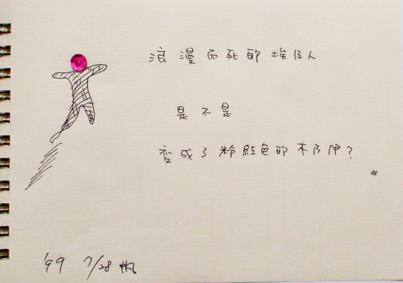 浪漫而死的埃及人
是不是
變成了粉紅色的木乃伊?
'99 7/28 帆